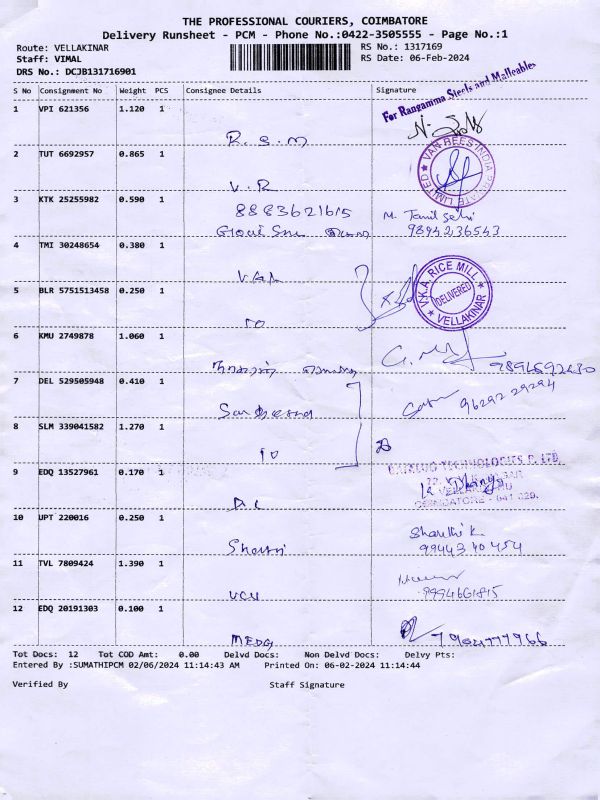 THE PROFESSIONAL COURIERS, COIMBATORE
Delivery Runsheet - PCM - Phone No.:0422-3505555 - Page No.:1
Route: VELLAKINAR
RS No.: 1317169
Staff: VIMAL
RS Date: 06-Feb-2024
DRS No.: DCJB131716901
S No Consignment No Weight PCS Consignee Details Signature
For Rangamma Steels and Malleables
1 VPI 621356 1.120 1
R.S.M
2 TUT 6692957 0.865 1
VAN REES INDIA PRIVATE LIMITED
V.R
3 KTK 25255982 0.590 1
8883621615 M. Tamil Selvi
9894236543
4 TMI 30248654 0.380 1
V.K.A. RICE MILL
DELIVERED
VELLAKINAR
5 BLR 5751513458 0.250 1
TO
6 KMU 2749878 1.060 1
7 DEL 529505948 0.410 1
9629229294
8 SLM 339041582 1.270 1
TO
TECHNOLOGIES P. LTD.
9 EDQ 13527961 0.170 1
COIMBATORE - 641 029.
10 UPT 220016 0.250 1
Shanthi K
9944340454
11 TVL 7809424 1.390 1
9994661845
12 EDQ 20191303 0.100 1
Tot Docs: 12 Tot COD Amt: 0.00 Delvd Docs: Non Delvd Docs: Delvy Pts:
Entered By :SUMATHIPCM 02/06/2024 11:14:43 AM Printed On: 06-02-2024 11:14:44
Verified By Staff Signature